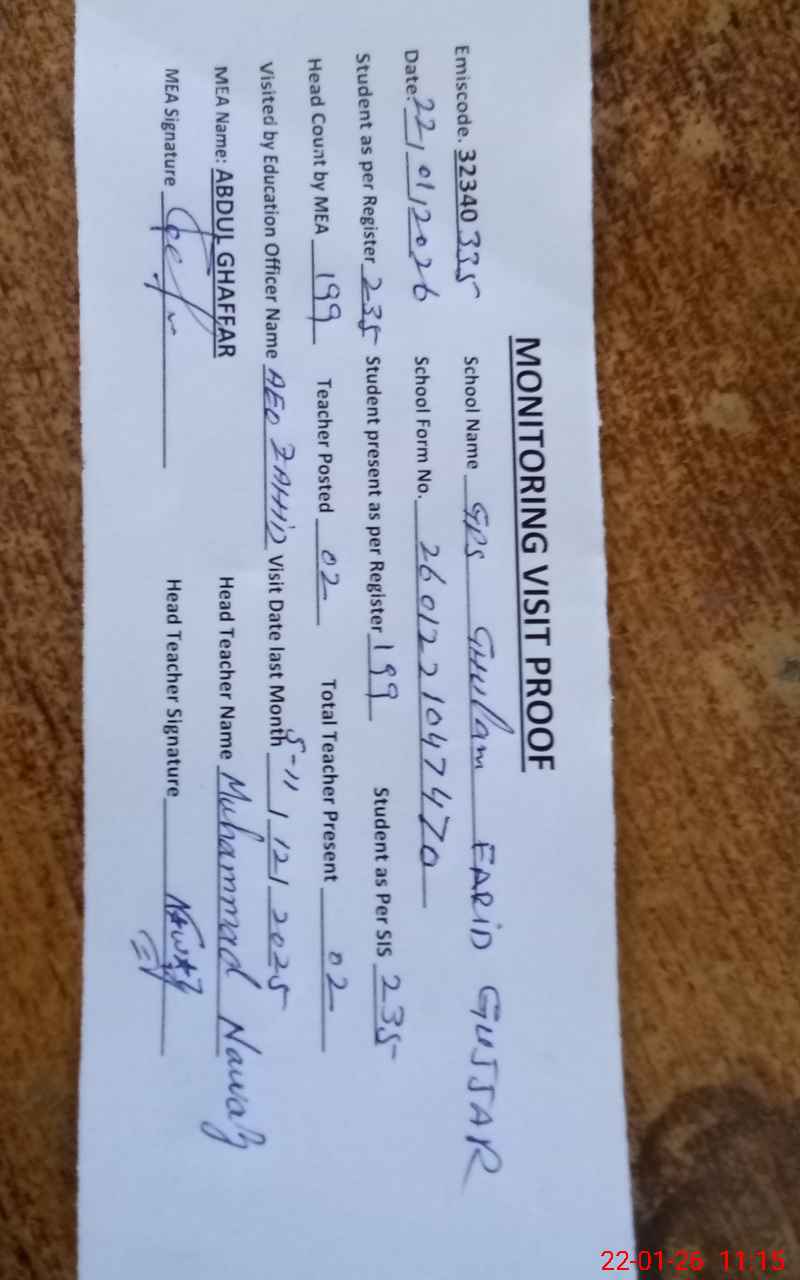 MONITORING VISIT PROOF
Emiscode. 32340335 School Name GPS GHULam FARID GUJJAR
Date: 22/01/2026 School Form No. 2601221047470
Student as per Register 235 Student present as per Register 199 Student as Per SIS 235
Head Count by MEA 199 Teacher Posted 02 Total Teacher Present 02
Visited by Education Officer Name AEO ZAHID Visit Date last Month 5-11/12/2025
MEA Name: ABDUL GHAFFAR Head Teacher Name Muhammad Nawaz
MEA Signature Head Teacher Signature Nawaz
22-01-26 11:15